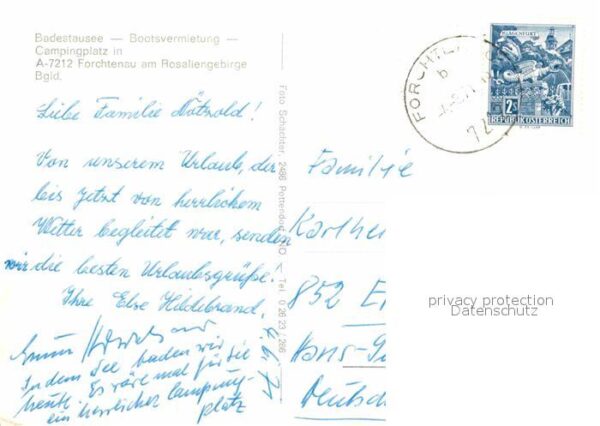 Badestausee — Bootsvermietung —
Campingplatz in
A-7212 Forchtenau am Rosaliengebirge
Bgld.
Liebe Familie Nötzold!
Von unserem Urlaub, der
bis jetzt von herrlichem
Wetter begleitet war, senden
wir die besten Urlaubsgrüße!
Ihre Else Hildebrand,
In dem See baden wir
heute. Es wäre mal für Sie
ein herrlicher Camping-
platz
Foto Schachter, 2486 Pottendorf, NÖ — Tel. 0 26 23 / 266
KLAGENFURT
2S
REPUBLIK ÖSTERREICH
FORCHTEN
b
Familie
Karlhe
852 E
Hans-G
Deutsch
privacy protection
Datenschutz